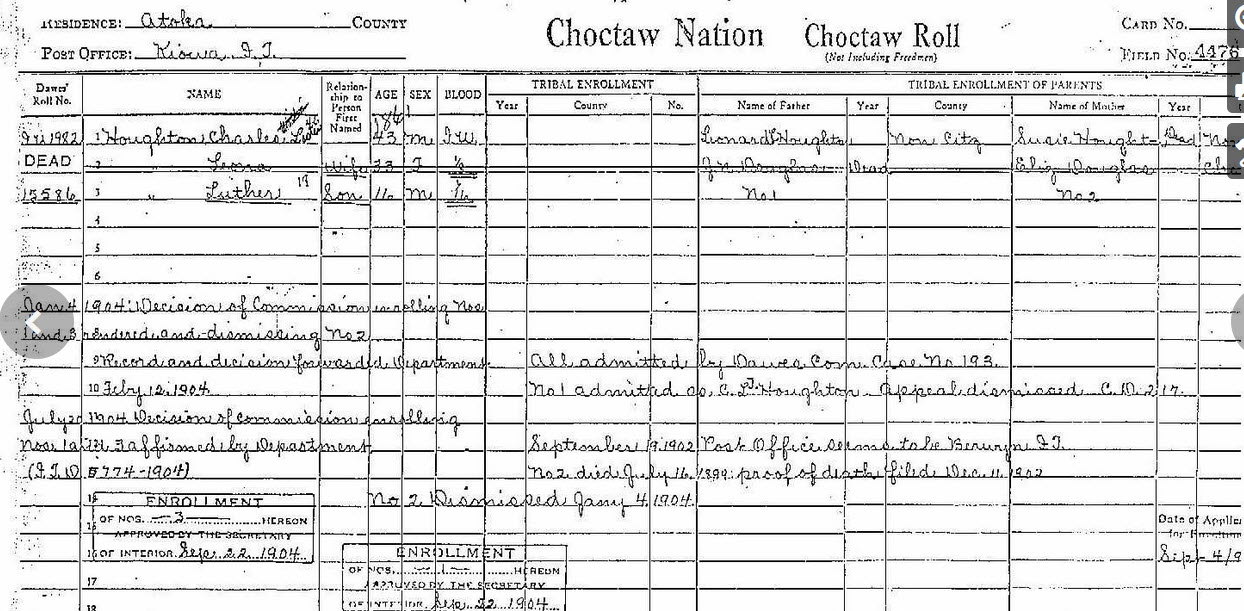 RESIDENCE: Atoka COUNTY
POST OFFICE: Kiowa, I.T.
Choctaw Nation Choctaw Roll
(Not Including Freedmen)
CARD NO.
FIELD NO. 4476
Dawes' Roll No. NAME Relationship to Person First Named AGE SEX BLOOD TRIBAL ENROLLMENT TRIBAL ENROLLMENT OF PARENTS
Year County No. Name of Father Year County Name of Mother Year
I.W. 982 1 Houghton, Charles 43 M I.W. Leonard Houghton Non Citz Susie Hought- Dead Non
DEAD 2 " Leona Wife 33 F J.N. Douglas Dead Eliz Douglas
15586 3 " Luther 19 Son 16 M 1/16 No1 No2
4
5
6
Jan 4 1904: Decision of Commission enrolling Nos
1 and 3 rendered and dismissing No 2
9 Record and decision forwarded Department. All admitted by Dawes Com. Case No 193.
10 Feby 12, 1904. No1 admitted as C. L. Houghton. Appeal dismissed C.D. 217.
July 20 1904 Decision of Commission enrolling
Nos. 1 and 3 affirmed by Department September 19, 1902 Post Office seems to be Berwyn I.T.
(I.T.D. 5774-1904) No2 died July 16, 1899: proof of death filed Dec. 11, 1902
No 2 Dismissed Jany 4, 1904.
ENROLLMENT
OF NOS. 3 HEREON
APPROVED BY THE SECRETARY
OF INTERIOR Sep. 22 1904
Date of Applic
for Enrollm
Sept 4/9
17
18
ENROLLMENT
OF NOS. 1 HEREON
APPROVED BY THE SECRETARY
OF INTERIOR Sep. 22 1904